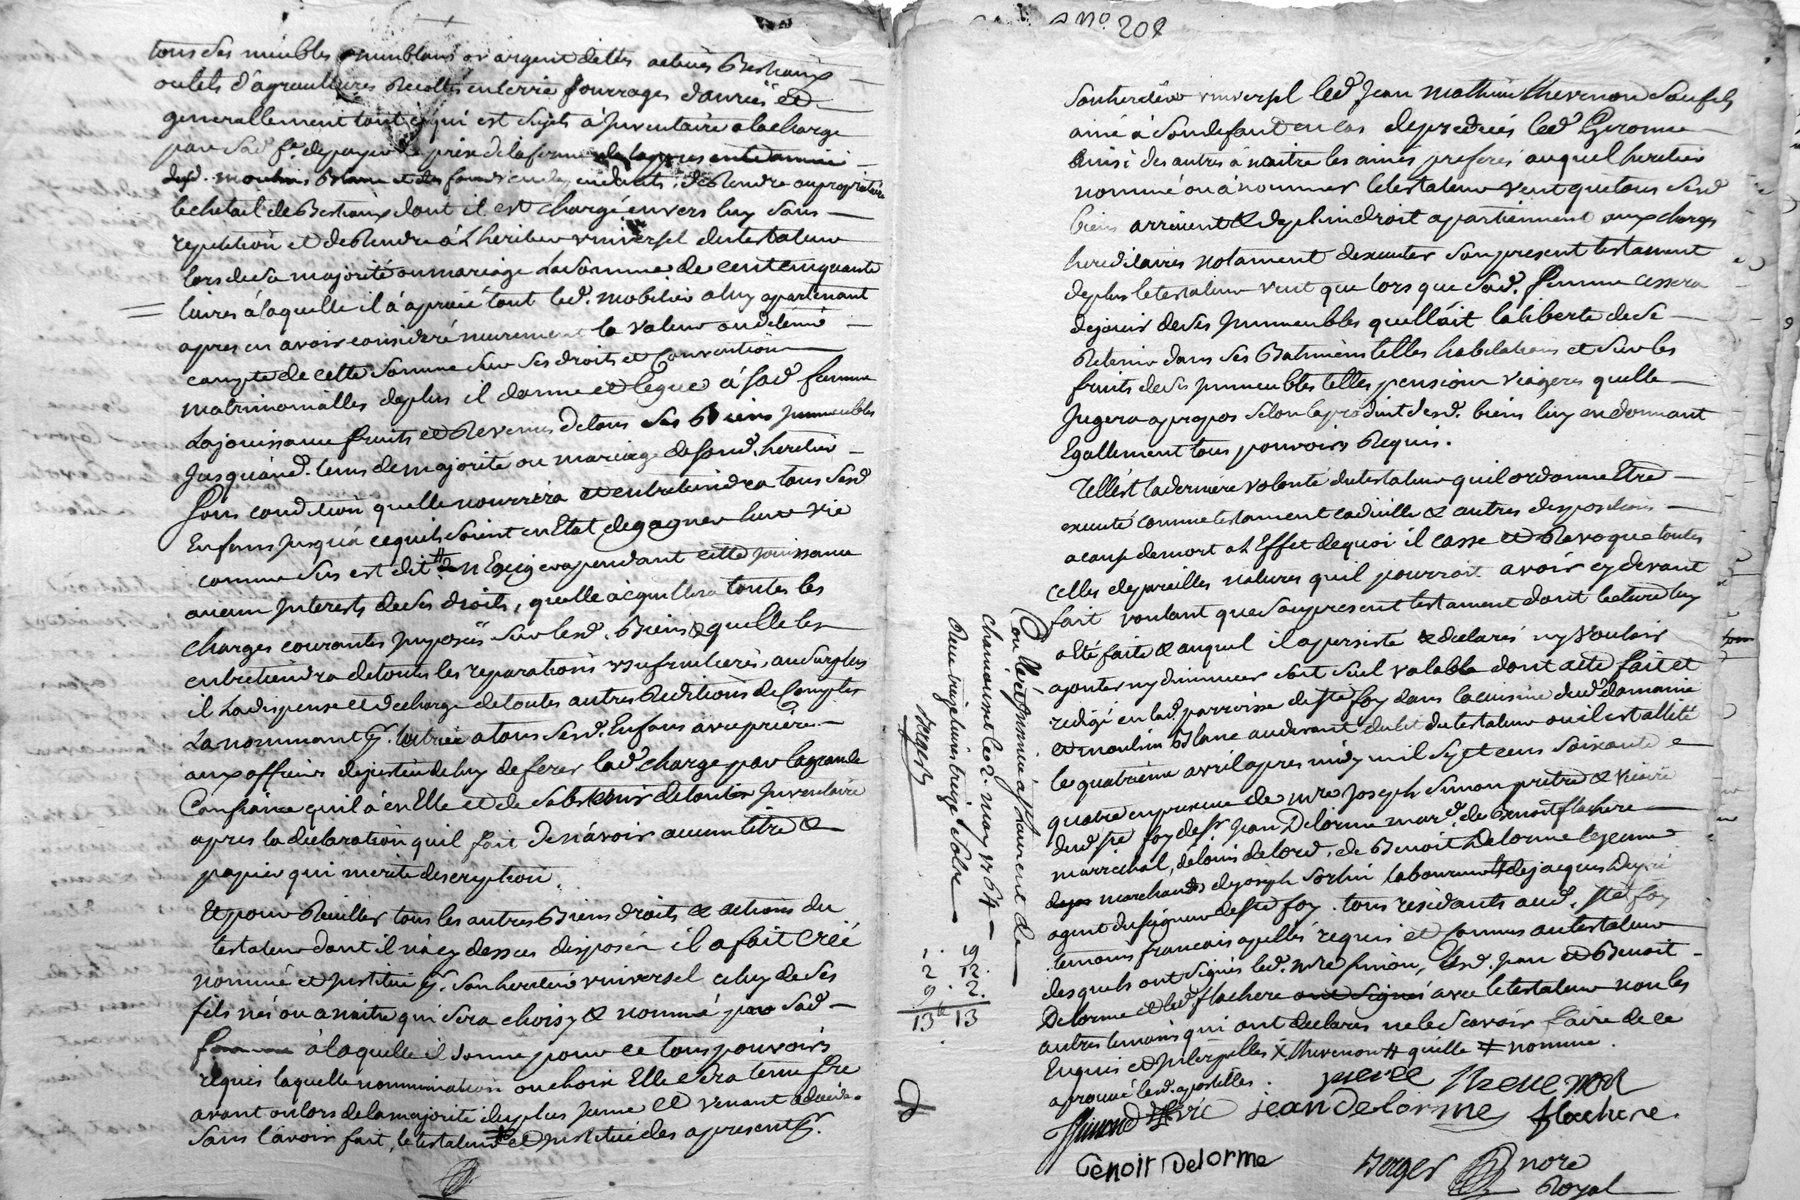 tous ses meubles meublants or argent dettes actives Bestiaux
outils d'agriculture Recoltes en terre fourrages danrées et
generallement tout ce qui est sujets à Inventaire a la charge
par sad. fe. de payer le prix de la ferme
moulins Blanc et des fonds en dependants, de Rendre au proprietaire
le chetail de Bestiaux dont il est chargé envers luy sans
repetition et de Rendre à l'heritier universel du testateur
lors de sa majorité ou mariage La somme de cent cinquante
livres à laquelle il a aprecié tout led. mobilier a luy apartenant
apres en avoir consideré meurement la valeur
compte de cette somme sur ses droits et Conventions
matrimonialles de plus il donne et Legue à sad. femme
La jouissance fruits et Revenus de tous ses Biens Immeubles
Jusqu'aud. tems de majorité ou mariage de sond. heritier
sous condition quelle nourrira et entretiendra tous sesd.
Enfans jusqu'à ce quils soient en Etat de gagner leur vie
comme sus est dit n'Exigera pendant cette jouissance
aucun Interests de ses droits, quelle acquittera toutes les
charges courantes Imposées sur lesd. Biens & quelle les
entretiendra de toutes les reparations usufruitieres, au surplus
il La dispense et decharge de toutes autres Redditions de Comptes
La nommant tutrice a tous sesd. Enfans avec priere
aux officiers de justice de luy deferer lad. charge par la grande
Confiance qu'il a en Elle et de s'abstenir de tout Inventaire
apres la declaration quil fait de n'avoir aucun titre &
papier qui merite description.
Et pour Recuillir tous les autres Biens droits & actions du
testateur dont il n'a cy dessus disposé il a fait creé
nommé et Institué son heritier universel celuy de ses
fils nés ou a naitre qui sera choisy & nommé par sad.
femme à laquelle il donne pour ce tous pouvoirs
requis laquelle nommination ou choix Elle sera tenu fre
avant ou lors de la majorité du plus jeune et venant a deceder
sans l'avoir fait, le testateur et Institue des apresent
No. 208
son heritier universel led. Jean Mathieu thevenon son fils
ainé à son defaut en cas de predecés led. Geromie
ainsi des autres à naitre les ainés preferés auquel heritier
nommé ou à nommer le testateur veut que tous sesd.
biens arrivent & de plein droit apartiennent aux charges
hereditaires notament d'executer son present testament
de plus le testateur veut que lors que sad. femme cessera
de jouir de ses Immeubles quelle ait la liberte de se
Retenir dans ses Batiments telles habitations et sur les
fruits de ses Immeubles telles pension viageres quelle
Jugera apropos selon le produit desd. biens luy en donnant
Egallement tous pouvoirs Requis.
Telle est la derniere volonté du testateur quil ordonne Etre
executé comme testament codicille & autres dispositions
a cause de mort a L'Effet de quoi il casse et Revoque toutes
celles de pareilles natures quil pourroit avoir cy devant
fait voulant que son present testament dont lecture luy
a été faite & auquel il a persisté & declaré ny vouloir
ajouter ny diminuer soit seul valable dont acte fait et
redigé en lad. parroisse de ste foy dans la cuisine dud. domaine
et moulin Blanc au devant du lit du testateur ou il est allité
le quatrieme avril apres midy mil sept cens soixante
quatre en presence de mre Joseph Simon pretre & vicaire
dud. ste foy de sr Jean Delorme mard. de Benoit flachere
marrechal, de louis delord, de Benoit Delorme le jeune
marchands de joseph sorlin laboureur de jacques Dupré
agent du seigneur de ste foy tous residants aud. ste foy
temoins francois apellés requis et connus au testateur
desquels ont signés led. mre simon, lesd. jean et Benoit
Delorme et led. flachere ont signé avec le testateur non les
autres temoins qui ont declarés ne le scavoir faire de ce
Enquis et Interpelles X thevenon # quille # nomme.
aprouvé led. apostilles
pierre Thevenon
Simond vic jean delorme flachere
Benoit Delorme Berger nore
Royal
Con[trô]lé et Insinué à st chamond le 2. may 1764
Receu treize livres treize sols
Berger
1. 19
2 12.
9. 2.
13# 13